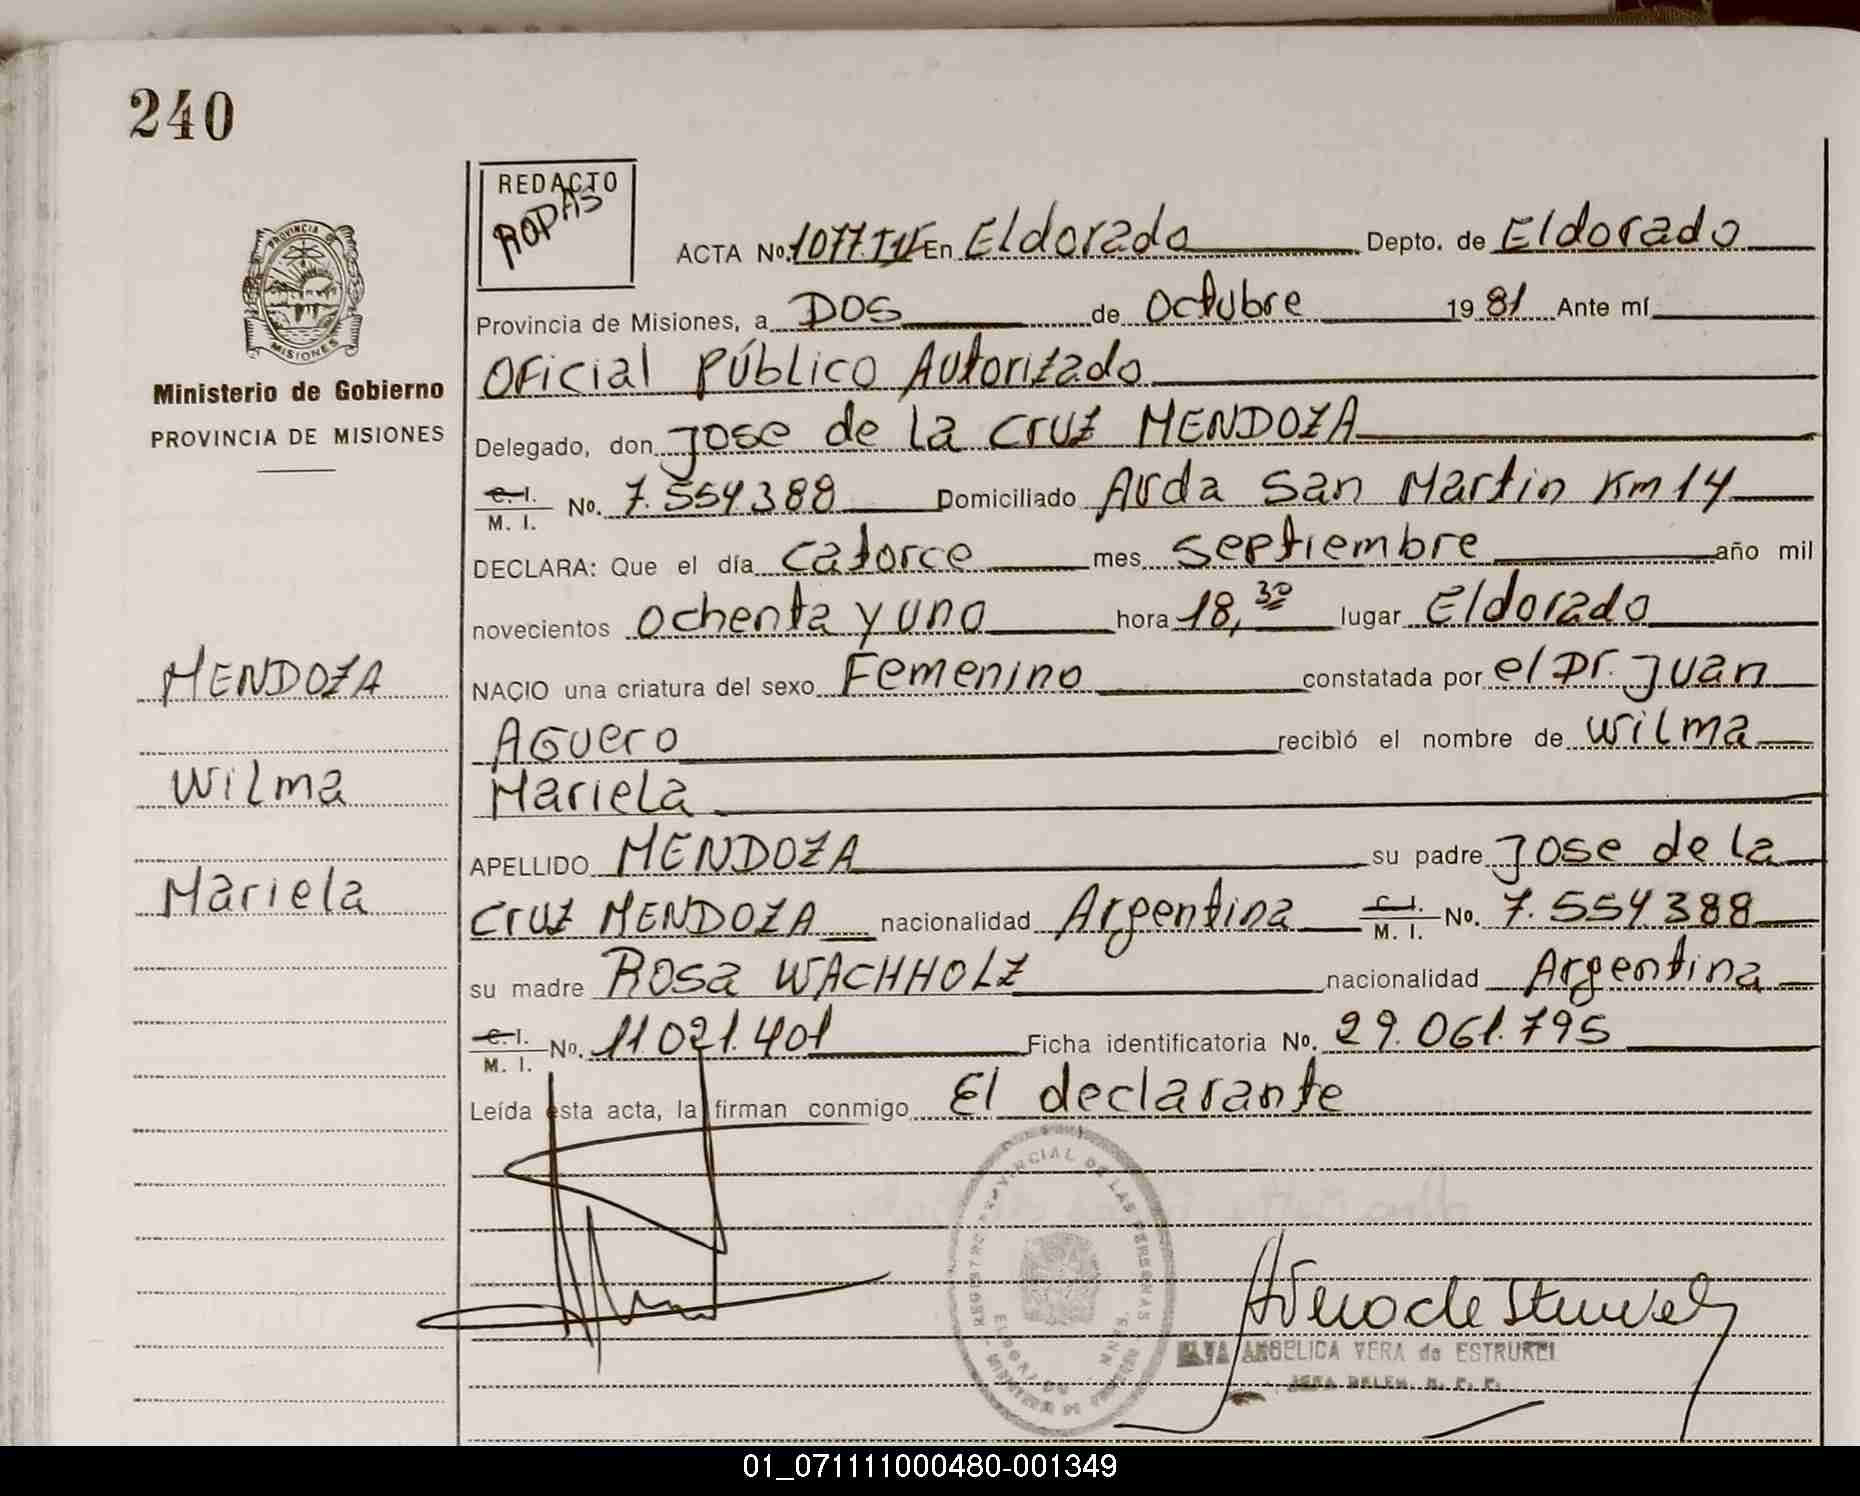 240
REDACTO
RODAS
PROVINCIA DE
MISIONES
Ministerio de Gobierno
PROVINCIA DE MISIONES
ACTA No. 1077.TIV En Eldorado Depto. de Eldorado
Provincia de Misiones, a DOS de Octubre 1981 Ante mí
Oficial Público Autorizado
Delegado, don Jose de la Cruz MENDOZA
C. I. / M. I. No. 7.554.388 Domiciliado Avda San Martin Km 14
DECLARA: Que el día catorce mes septiembre año mil
novecientos ochenta y uno hora 18,30 lugar Eldorado
NACIO una criatura del sexo Femenino constatada por el Dr. Juan
Aguero recibió el nombre de Wilma
Mariela
APELLIDO MENDOZA su padre Jose de la
Cruz MENDOZA nacionalidad Argentina C. I. / M. I. No. 7.554.388
su madre Rosa WACHHOLZ nacionalidad Argentina
C. I. / M. I. No. 11.021.401 Ficha identificatoria No. 29.061.795
Leída esta acta, la firman conmigo El declarante
MENDOZA
Wilma
Mariela
REGISTRO PROVINCIAL DE LAS PERSONAS
ELDORADO
ANGELICA VERA de ESTRUKEL
01_071111000480-001349